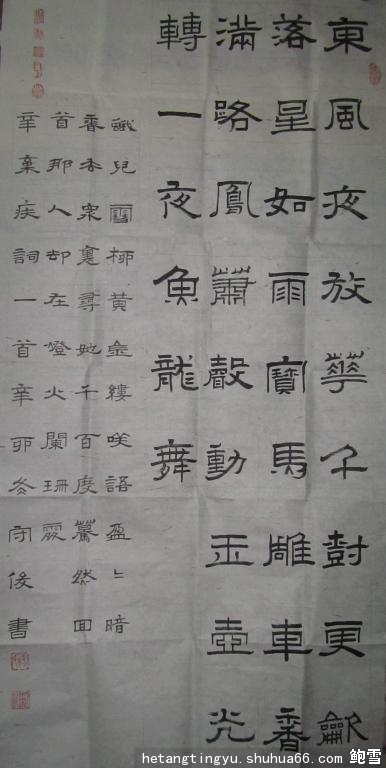 東風夜放華千尌更龡
落星如雨寶馬雕車香
滿路鳳蕭聲動玉壺光
轉一夜魚龍舞
蛾兒雪柳黃金縷咲語盈〻暗
香去衆裏尋她千百度驀然回
首那人却在燈火闌珊處
辛棄疾詞一首辛卯冬守俊書
hetangtingyu.shuhua66.com 鲍雪